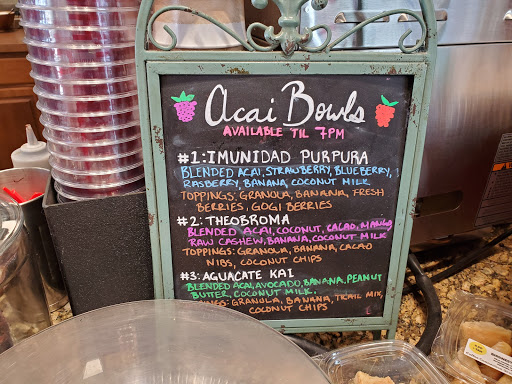 Acai Bowls
AVAILABLE TIL 7PM
#1: IMUNIDAD PURPURA
BLENDED ACAI, STRAWBERRY, BLUEBERRY,
RASBERRY, BANANA, COCONUT MILK
TOPPINGS: GRANOLA, BANANA, FRESH
BERRIES, GOGI BERRIES
#2: THEOBROMA
BLENDED ACAI, COCONUT, CACAO, MANGO
RAW CASHEW, BANANA, COCONUT MILK
TOPPINGS: GRANOLA, BANANA, CACAO
NIBS, COCONUT CHIPS
#3: AGUACATE KAI
BLENDED ACAI, AVOCADO, BANANA, PEANUT
BUTTER, COCONUT MILK.
GRANOLA, BANANA, TRAIL MIX,
COCONUT CHIPS